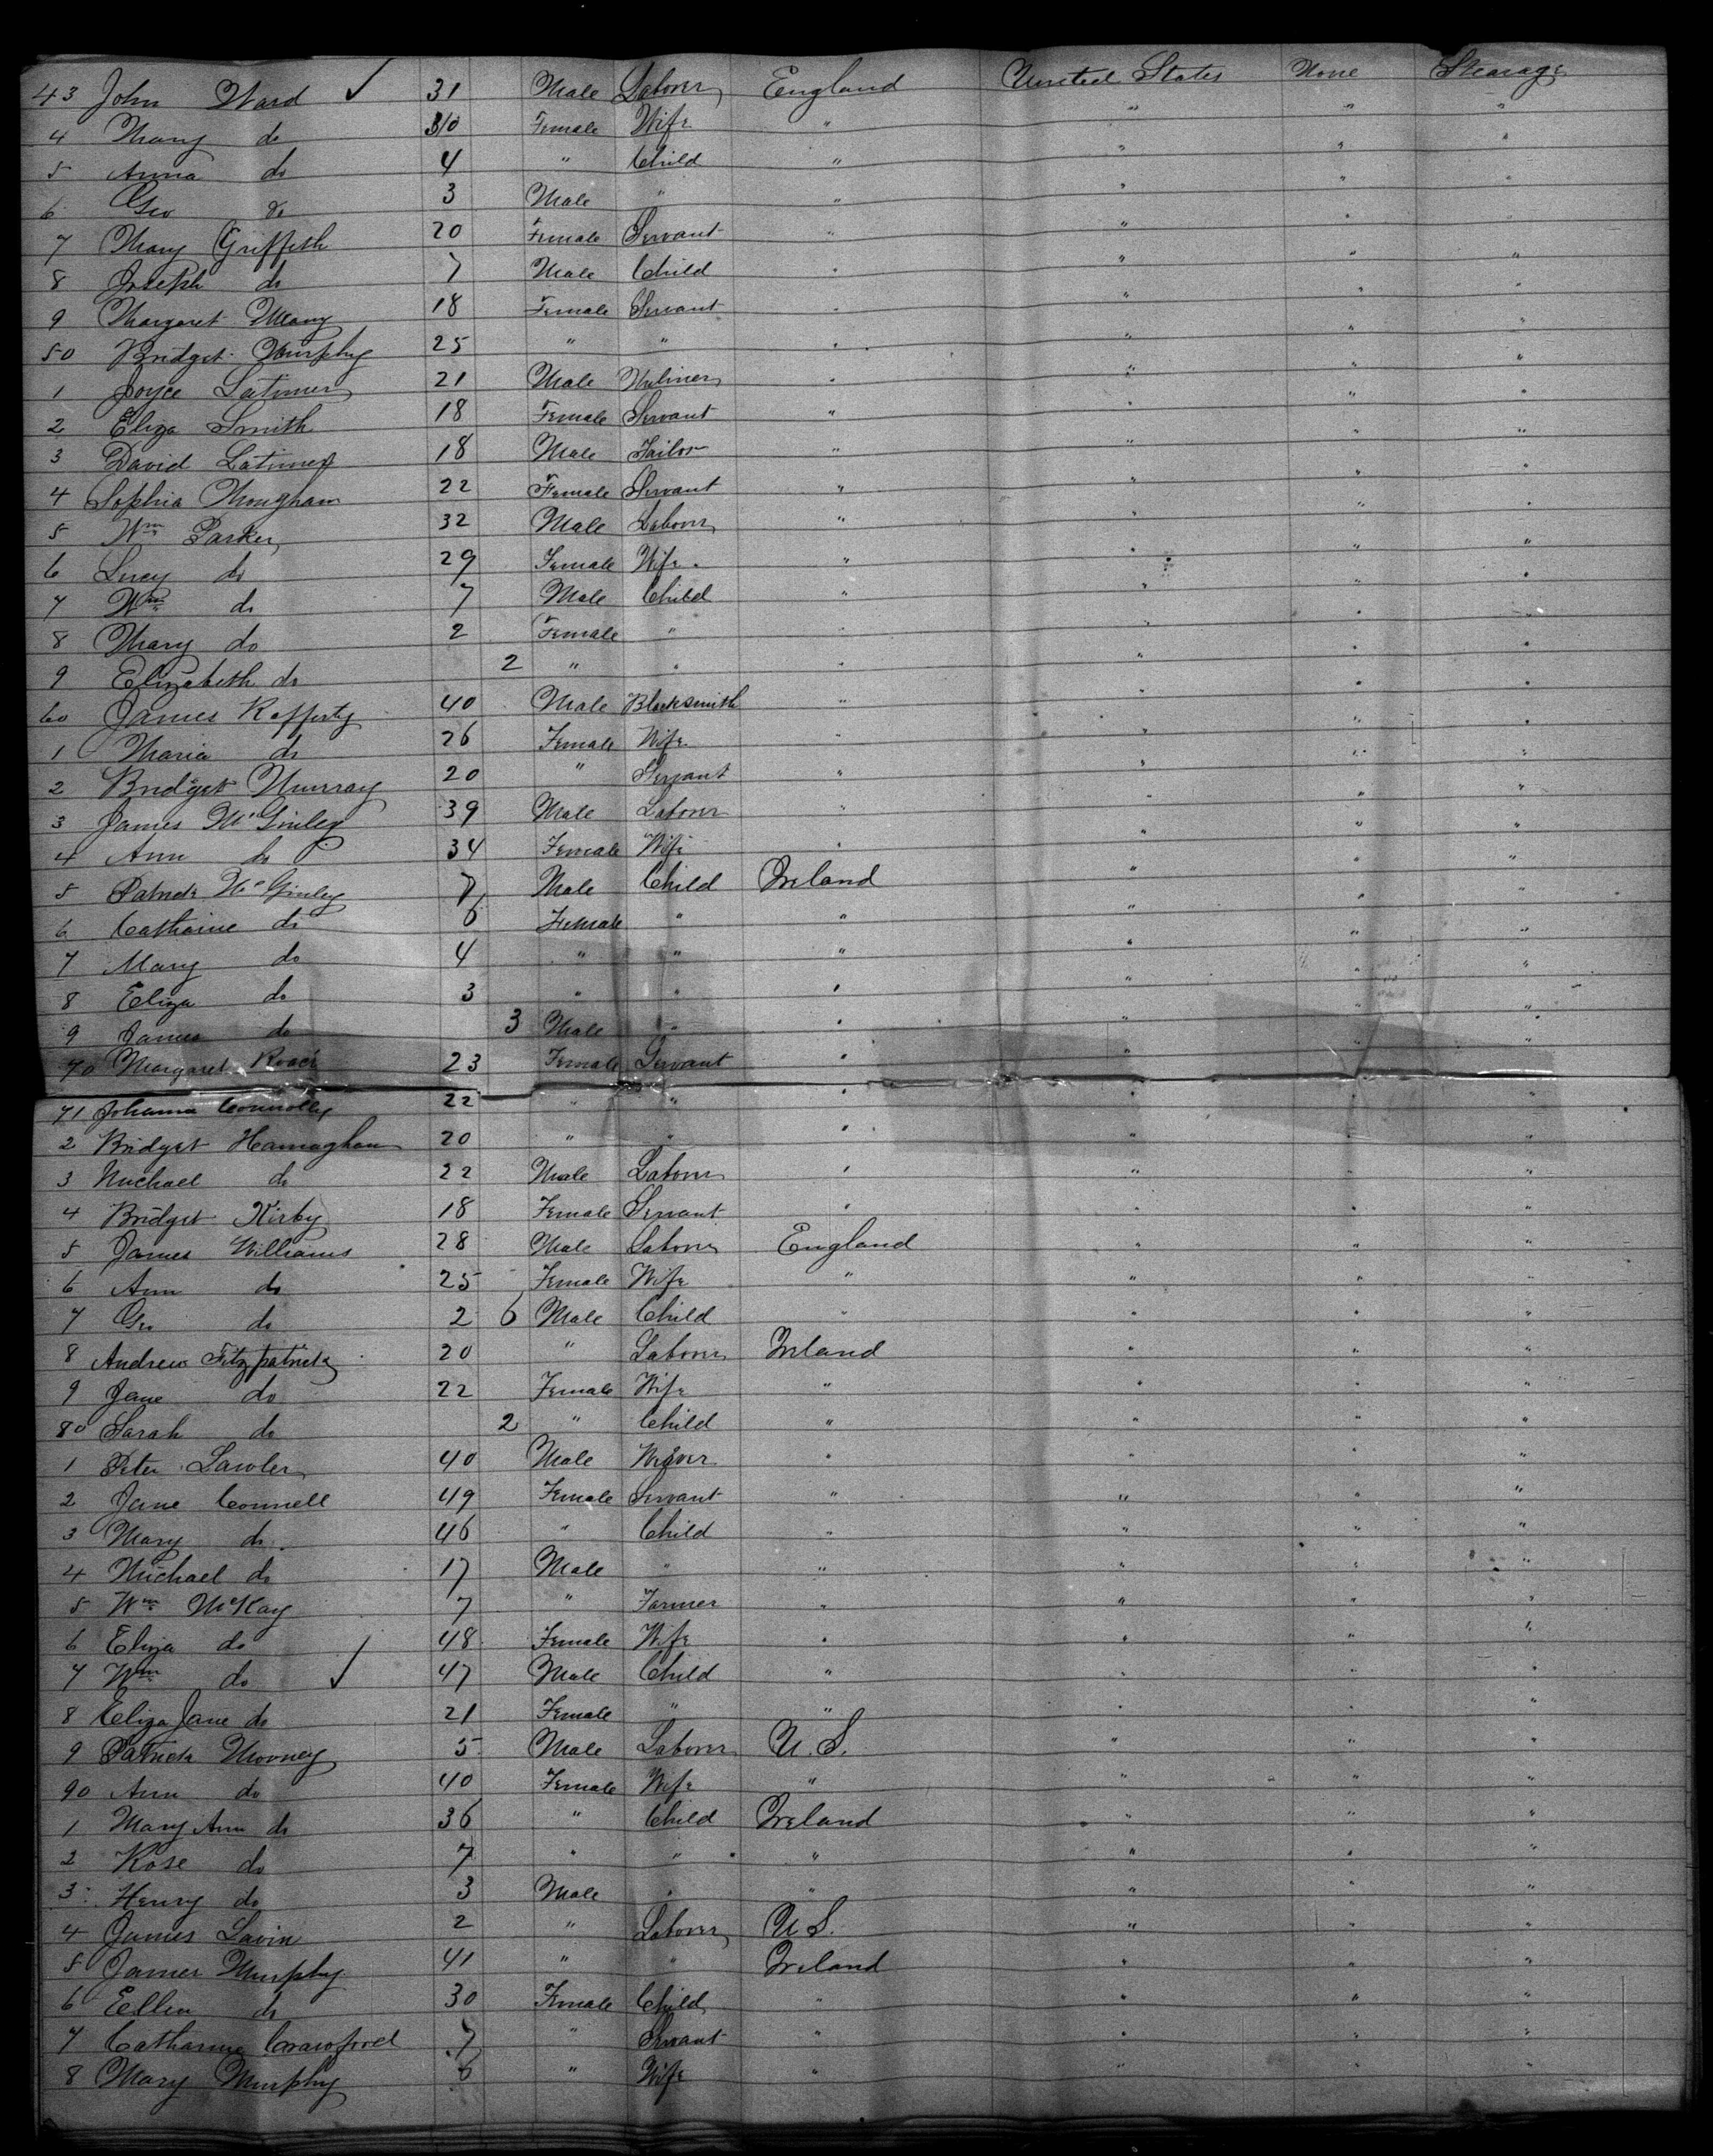 43 John Ward ✓ 31 Male Laborer England United States None Stearage
4 Mary do 30 Female Wife " " " "
5 Anna do 4 " Child " " " "
6 Geo do 3 Male " " " " "
7 Mary Griffith 20 Female Servant " " " "
8 Joseph do 7 Male Child " " " "
9 Margaret Meany 18 Female Servant " " " "
50 Bridget Murphy 25 " " " " " "
1 Joyce Latimer 21 Male " " " "
2 Eliza Smith 18 Female Servant " " " "
3 David Latimer 18 Male Tailor " " " "
4 Sophia 22 Female Servant " " " "
5 Wm Parker 32 Male Laborer " " " "
6 Lucy do 29 Female Wife " " " "
7 Wm do 7 Male Child " " " "
8 Mary do 2 Female " " " " "
9 Elizabeth do 2 " " " " " "
60 James Rafferty 40 Male Blacksmith " " " "
1 Maria do 26 Female Wife " " " "
2 Bridget Murray 20 " Servant " " " "
3 James McGinley 39 Male Laborer " " " "
4 Ann do 34 Female Wife " " " "
5 Patrick McGinley 7 Male Child Ireland " " "
6 Catharine do 6 Female " " " " "
7 Mary do 4 " " " " " "
8 Eliza do 3 " " " " " "
9 James do 3 Male " " " " "
70 Margaret Roach 23 Female Servant " " " "
71 Johanna Connolly 22 " " " " " "
2 Bridget Hannaghan 20 " " " " " "
3 Michael do 22 Male Laborer " " " "
4 Bridget Kirby 18 Female Servant " " " "
5 James Williams 28 Male Laborer England " " "
6 Ann do 25 Female Wife " " " "
7 Geo do 2 6 Male Child " " " "
8 Andrew Fitzpatrick 20 " Laborer Ireland " " "
9 Jane do 22 Female Wife " " " "
80 Sarah do 2 " Child " " " "
1 Peter Lawler 40 Male Weaver " " " "
2 Jane Connell 49 Female Servant " " " "
3 Mary do 46 " Child " " " "
4 Michael do 17 Male " " " " "
5 Wm McKay 7 " Farmer " " " "
6 Eliza do 48 Female Wife " " " "
7 Wm do ✓ 47 Male Child " " " "
8 Eliza Jane do 21 Female " " " " "
9 Patrick Mooney 5 Male Laborer U.S. " " "
90 Ann do 40 Female Wife " " " "
1 Mary Ann do 36 " Child Ireland " " "
2 Rose do 7 " " " " " "
3 Henry do 3 Male " " " " "
4 James Lavin 2 " Laborer U S. " " "
5 James Murphy 41 " " Ireland " " "
6 Ellen do 30 Female Child " " " "
7 Catharine Crawford 7 " Servant " " " "
8 Mary Murphy 6 " Wife " " " "